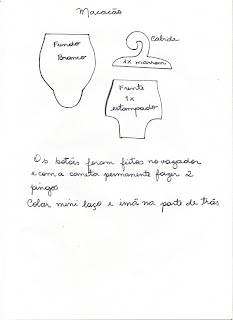 Macacão
Fundo
Branco
Cabide
1x marrom
Frente
1x
estampado
Os botões foram feitos no vazador
e com a caneta permanente fazer 2
pingos
Colar mini laço e imã na parte de trás